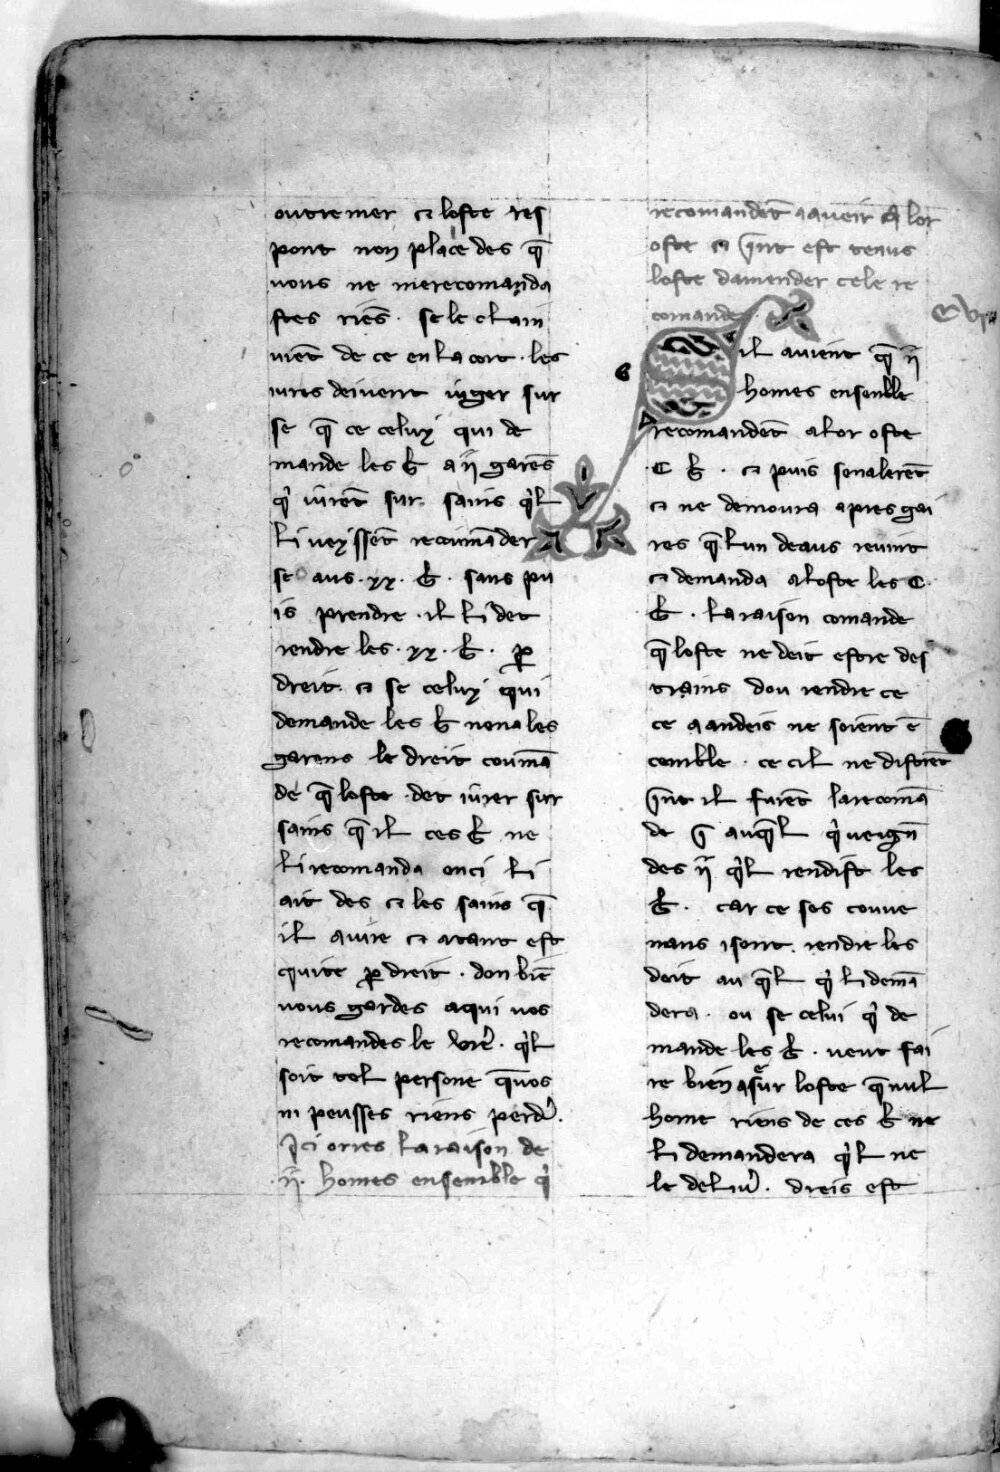 outremer ⁊ lofte ref
pont non place des q̄
vous ne merecomanda
ftes riēs · se le clam
viēt de ce en la cort · les
iures deivent iuger sur
se q̄ ce celuy qui de
mande les b̄ a ıȷ̄ garēs
qͥ iurēt sur sains qͥl
li veyssēt recoumāder
se aus · xx · b̄ · sans pu
is prendre · il li det
rendre les · xx · b̄ · ꝑ
dreit · ⁊ se celuy qui
demande les b̄ nena les
garens le dreit coumā
de q̄ lofte · det iurer sur
sains q̄ il ces b̄ ne
li recomanda enci li
ait des ⁊ les sains q̄
il a iure ⁊ atant eft
quite ꝑ dreit · don biē
vous gardes a qui vos
recomandes le vrē · qͥl
soit tel persone q̄ vos
ni peusses riens perdͬ ·
Ici ories la raison de
· ıȷ̄ · homes ensemble qͥ
recomandēt aaveir a lor
ofte ⁊ q̄nt eft tenus
lofte damender cele re
comande
S il avient q̄ ıȷ̄
homes ensemble
recomandēt a lor ofte
· C b̄ · ⁊ puis senalerēt
⁊ ne demoura apres gai
res q̄ lun deaus revint
⁊ demanda a lofte les C ·
b̄ · la raison comande
q̄ lofte ne deit eftre def
trains dou rendre ce
ce aandeis ne soient ē
cemble · ce cil ne diftiēt
q̄nt il furēt la recomā
de auq̄l qͥ veign̄
des ıȷ̄ qͥl rendift les
b̄ · car ce sos couve
nans i sont · rendre les
doit au q̄l qͥ li demā
dera · ou se celui qͥ de
mande les b̄ · veut fai
re bien aseur lofte q̄ nul
home riens de ces b̄ ne
li demandera qͥl ne
le delivͬ · dreis eft